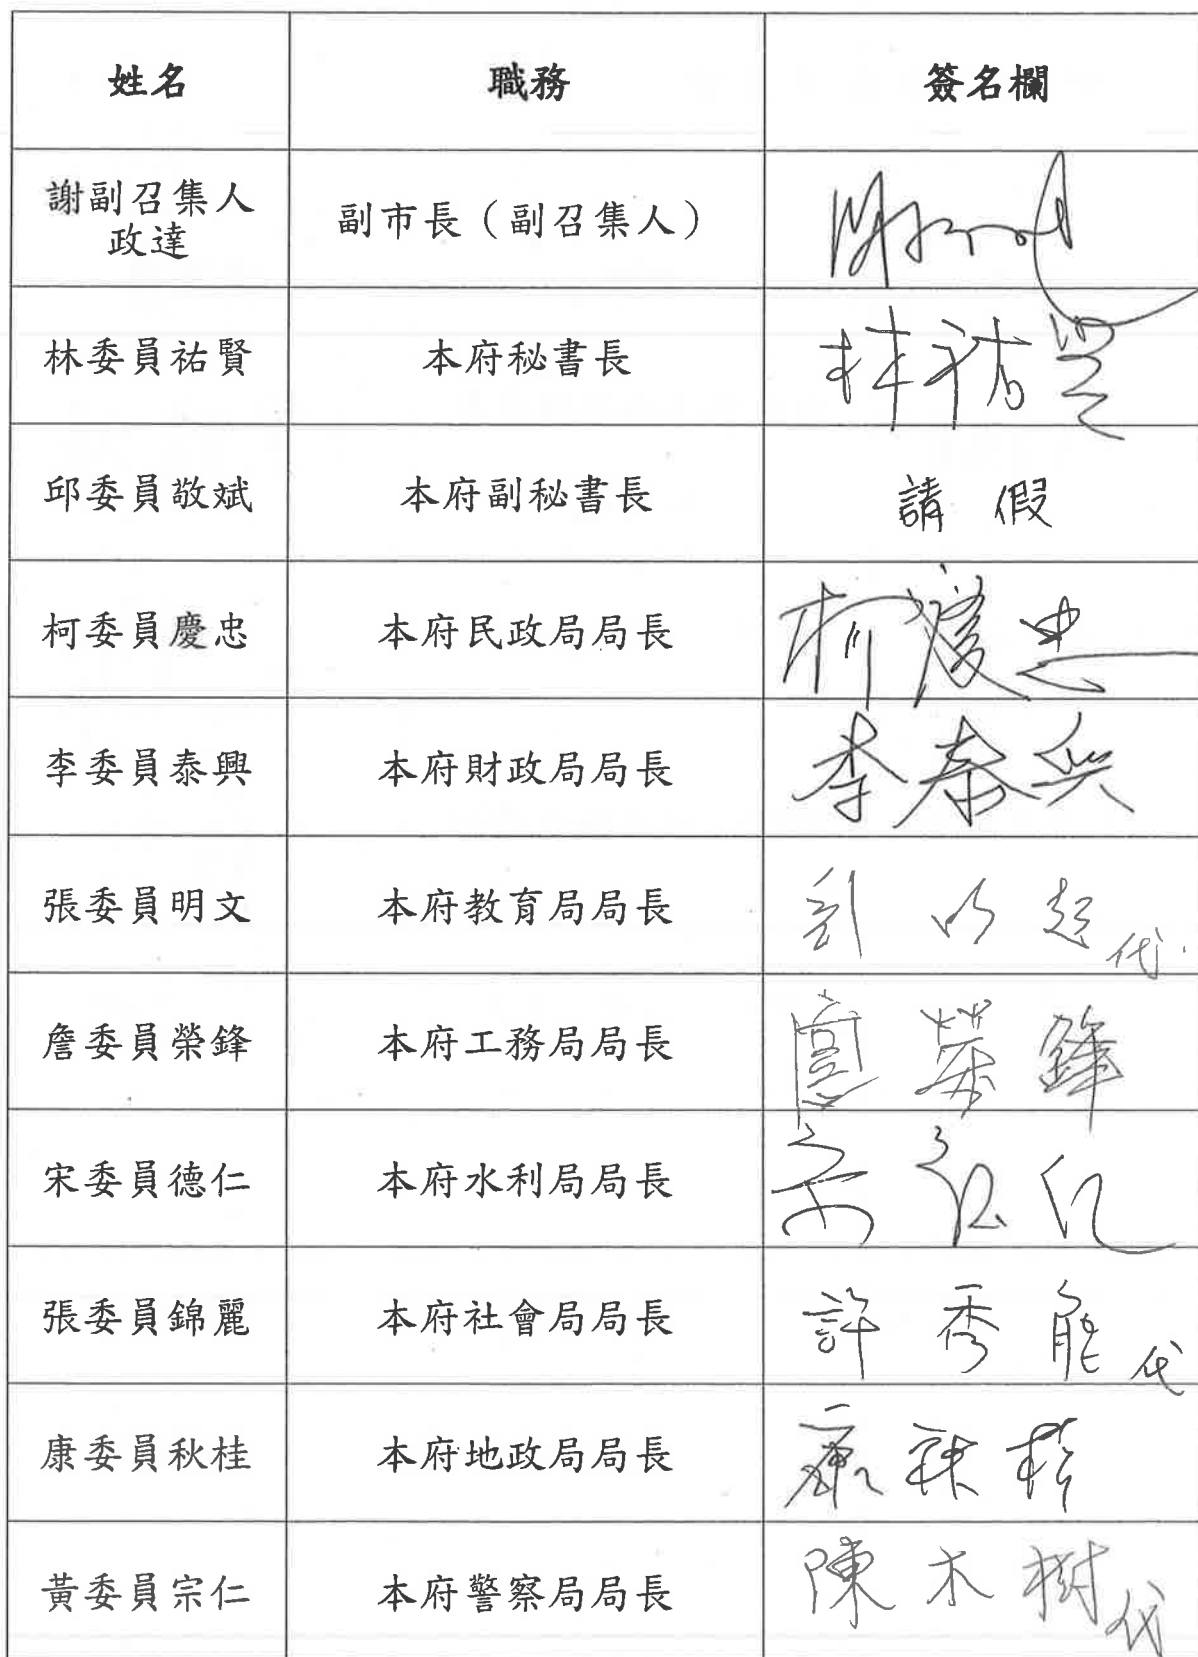 姓名 職務 簽名欄
謝副召集人
政達
副市長（副召集人）
林委員祐賢 本府秘書長 林祐賢
邱委員敬斌 本府副秘書長 請假
柯委員慶忠 本府民政局局長 柯慶忠
李委員泰興 本府財政局局長 李泰興
張委員明文 本府教育局局長 代
詹委員榮鋒 本府工務局局長 詹榮鋒
宋委員德仁 本府水利局局長 宋德仁
張委員錦麗 本府社會局局長 許秀能代
康委員秋桂 本府地政局局長 康秋桂
黃委員宗仁 本府警察局局長 陳木樹代